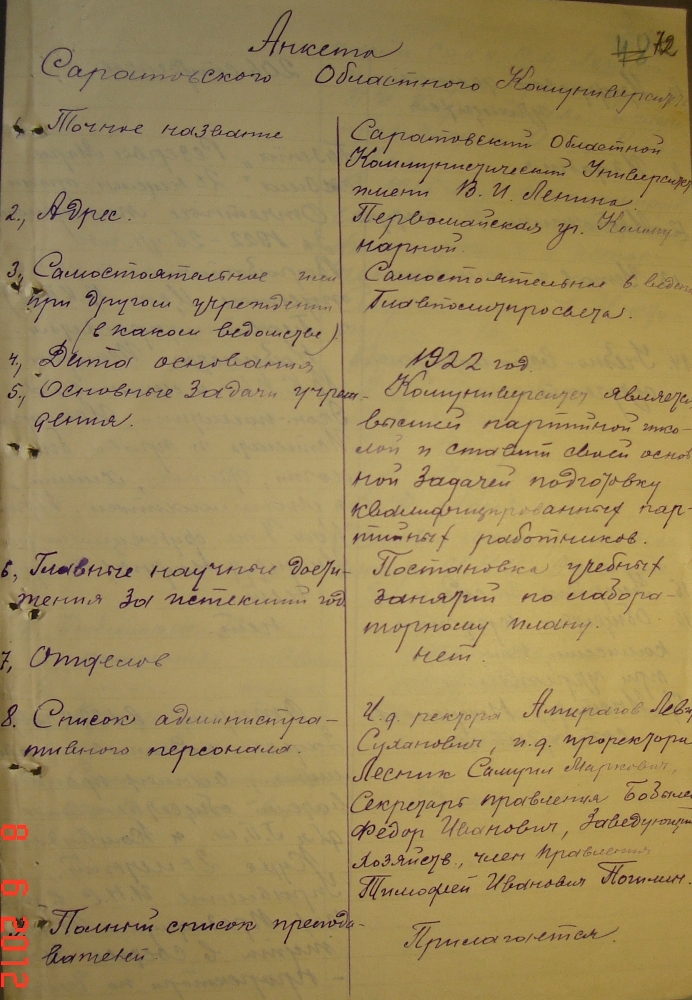 48 72
Анкета
Саратовского Областного Комуниверсит
1. Точное название
Саратовский Областной
Коммунистический Университет
имени В. И. Ленина
2., Адрес.
Первомайская уг. Комму
нарной.
3, Самостоятельное или
при другом учреждении
(в каком ведомстве)
Самостоятельное в веден
Главполитпросвета.
4, Дата основания
1922 год.
5., Основные задачи учреж-
дения.
Комуниверситет является
высшей партийной шко-
лой и ставит своей основ
ной задачей подготовку
квалифицированных пар-
тийных работников.
6, Главные научные дости-
жения за истекший год
Постановка учебных
занятий по лабора-
торному плану.
7, Отделов
нет.
8. Список администра-
тивного персонала.
И.д. ректора Лев
Суланович, и.д. проректора
Лесник Самуил Маркович,
Секретарь правления Бобылев
Федор Иванович, Заведующий
хозяйств., член Правления
Тимофей Иванович
9. Полный список препода-
вателей.
Прилагается.
8 6 2012